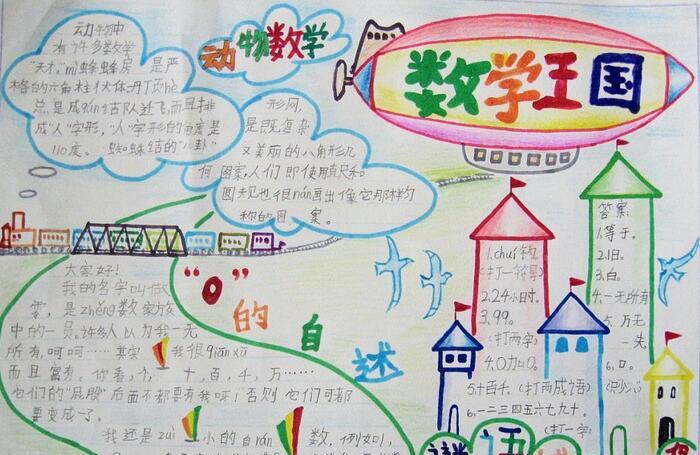 动物数学
数学王国
动物中
有许多数学
"天才"。mì蜂蜂房是严
格的六角柱状体。丹顶hè
总是成qún结队迁飞,而且排
成"人"字形,"人"字形的角度是
110度。蜘蛛结的"八卦"
形网,
是既复杂
又美丽的八角形几
何图案,人们即使用直尺和
圆规也很nán画出像它那样匀
称的图案。
"0"的自述
大家好!
我的名字叫做
零,是zhěng数家族
中的一员。许多人以为我一无
所有,呵呵……其实我很qiān xū
而且富有。你看,个、十、百、千、万……
它们的"屁股"后面不都要有我呀!否则它们可都
要变成了。
我还是zuì小的自rán数,例如,
1.chuí钓
(打一符号)
2.24小时。
3.99。
(打两字)
4.0加0。
5.十百千。(打两成语)
6.一二三四五六七九十。
(打一字)
答案:
1.等于。
2.旧。
3.白。
4.一无所有
5.万无
一失
6.口。
(只少八)
谜语城堡